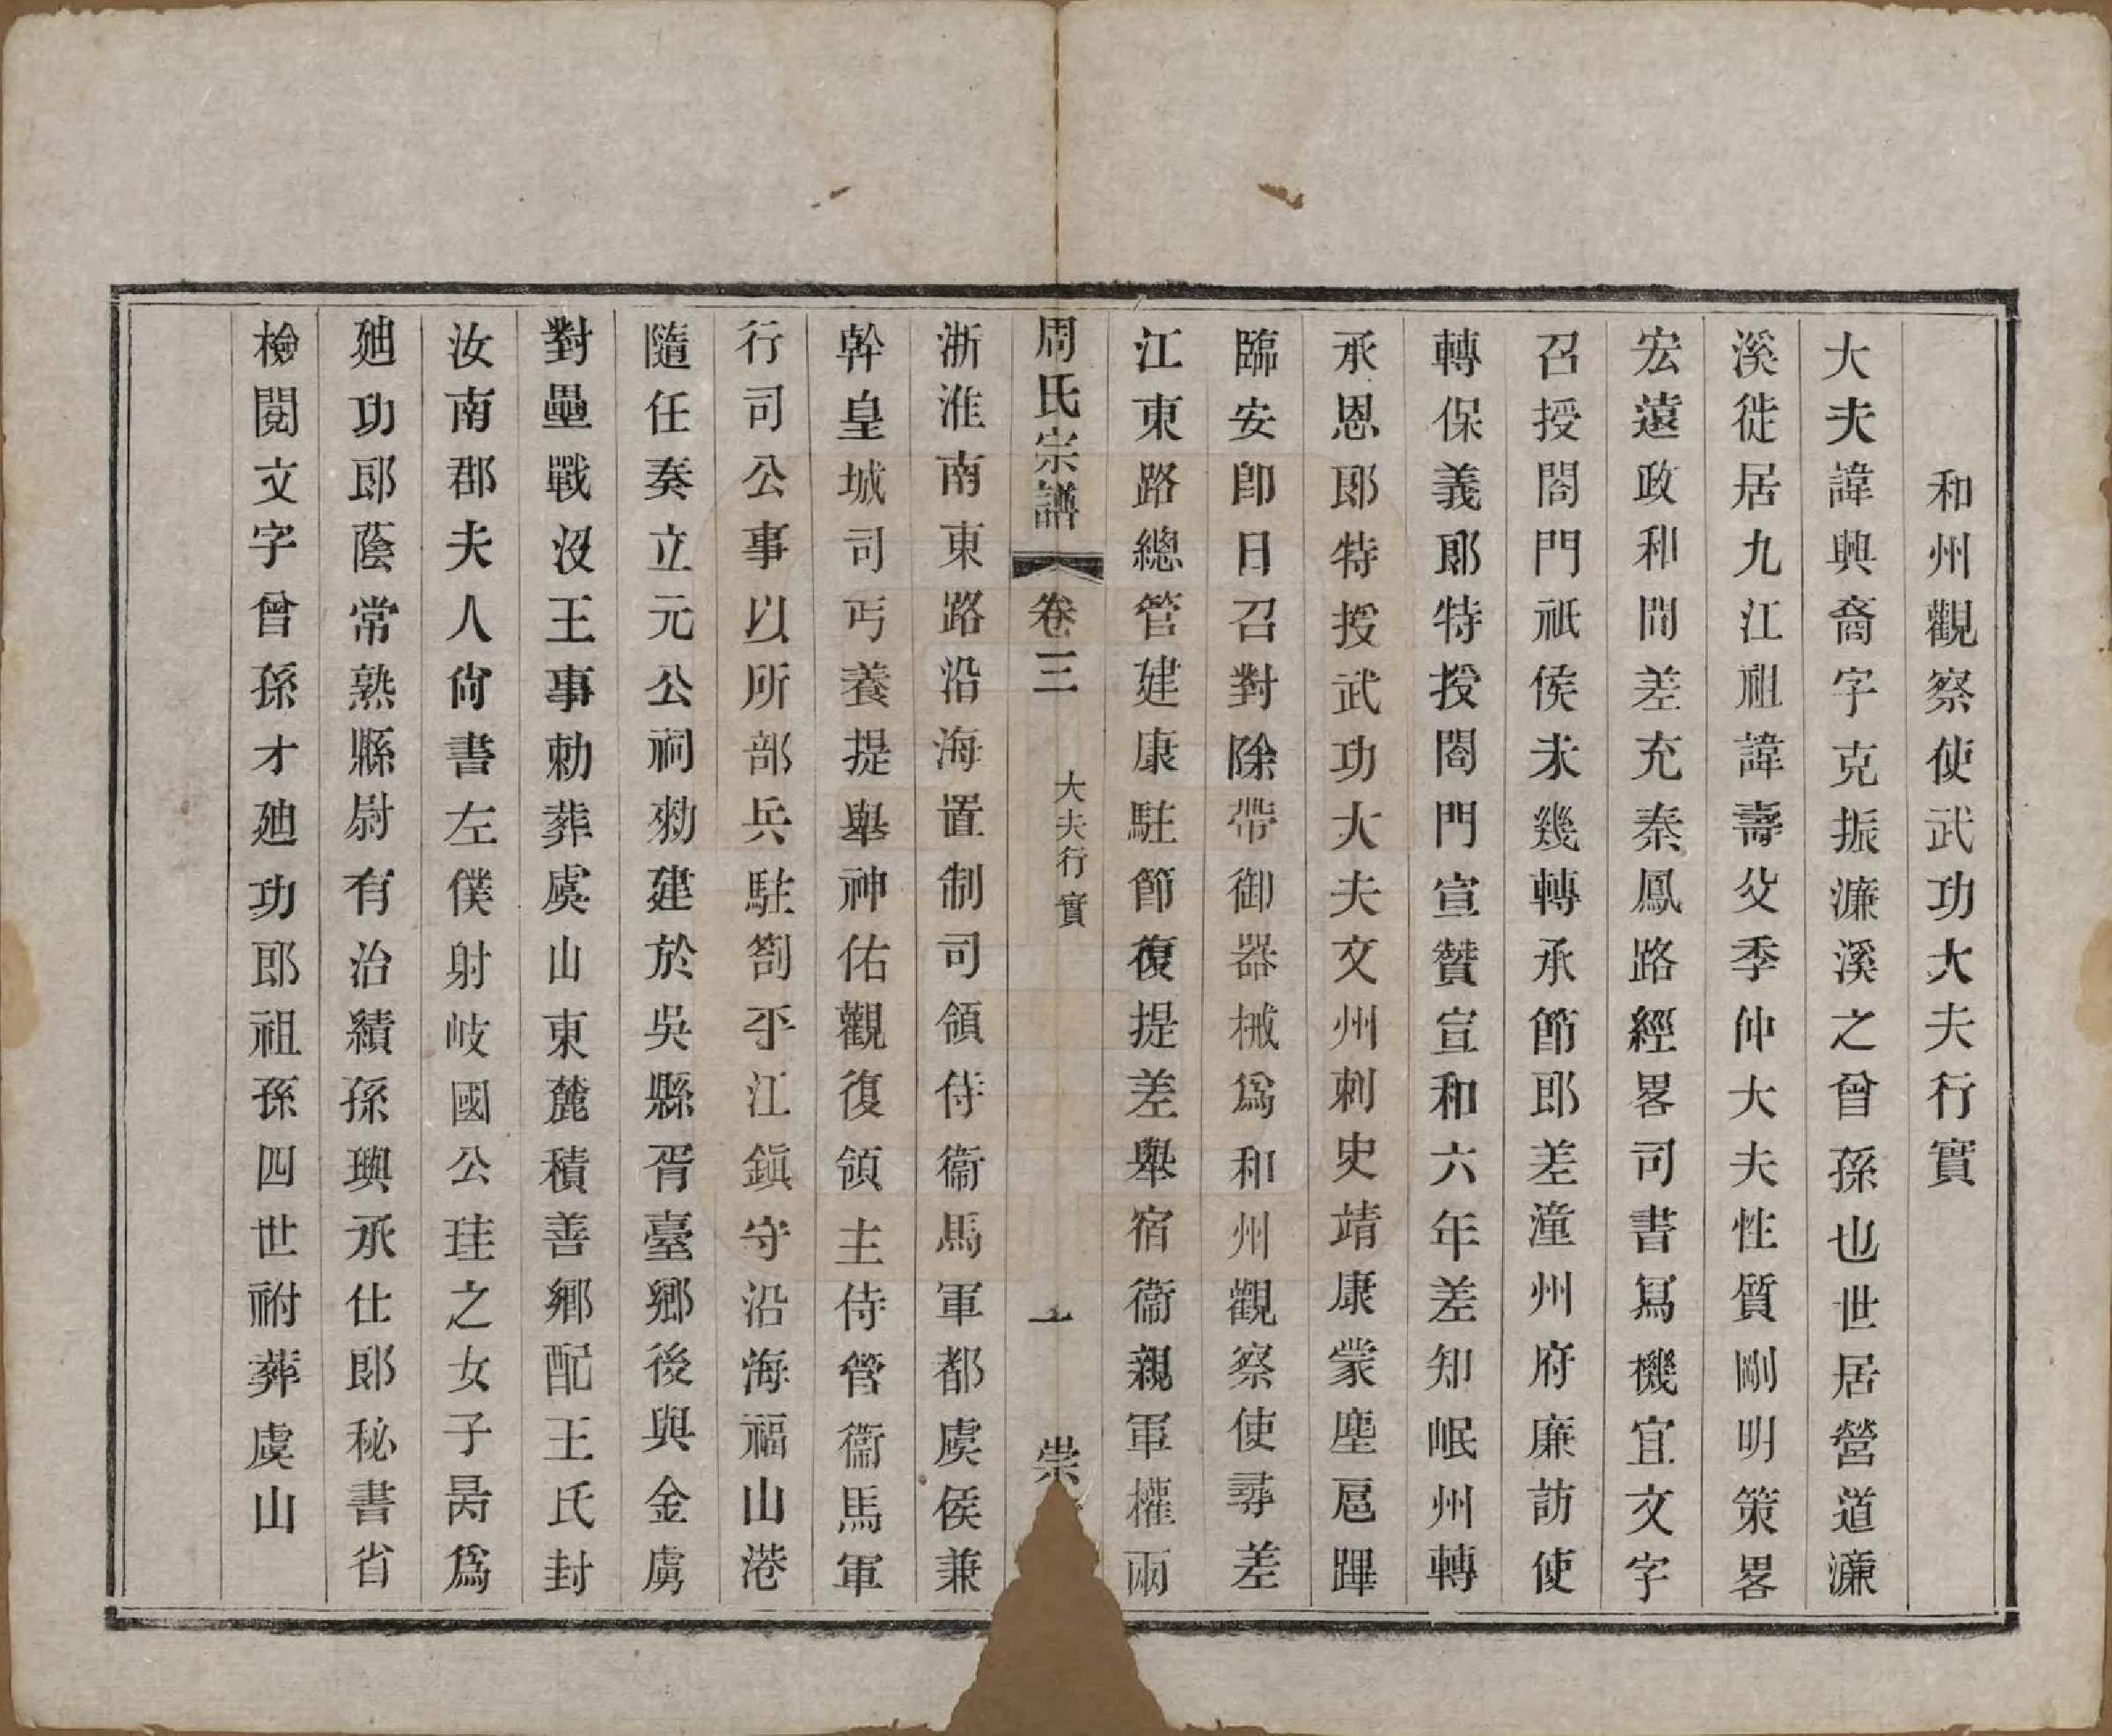 和州觀察使武功大夫行實
大夫諱興裔字克振濂溪之曾孫也世居營道濂
溪徙居九江祖諱壽父季仲大夫性質剛明策畧
宏遠政和間差充秦鳳路經畧司書寫機宜文字
召授閤門祇侯未幾轉承節郎差潼州府廉訪使
轉保義郎特授閤門宣贊宣和六年差知岷州轉
承恩郎特授武功大夫文州刺史靖康蒙塵扈蹕
臨安卽日召對除帶御器械爲和州觀察使尋差
江東路總管建康駐節復提差舉宿衞親軍權兩
周氏宗譜
卷三
大夫行實
一
崇
浙淮南東路沿海置制司領侍衞馬軍都虞侯兼
幹皇城司丐養提舉神佑觀復領主侍管衞馬軍
行司公事以所部兵駐劄平江鎭守沿海福山港
隨任奏立元公祠勑建於吳縣胥臺鄉後與金虜
對壘戰沒王事勅葬虞山東麓積善鄉配王氏封
汝南郡夫人尙書左僕射岐國公珪之女子昺爲
廸功郎蔭常熟縣尉有治績孫璵承仕郎秘書省
檢閱文字曾孫才廸功郎祖孫四世祔葬虞山